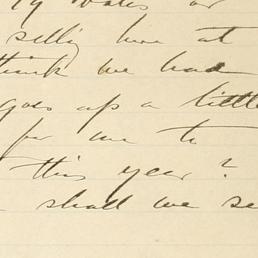 selling here at
think we had
goes up a little
for me to
this year?
shall we se